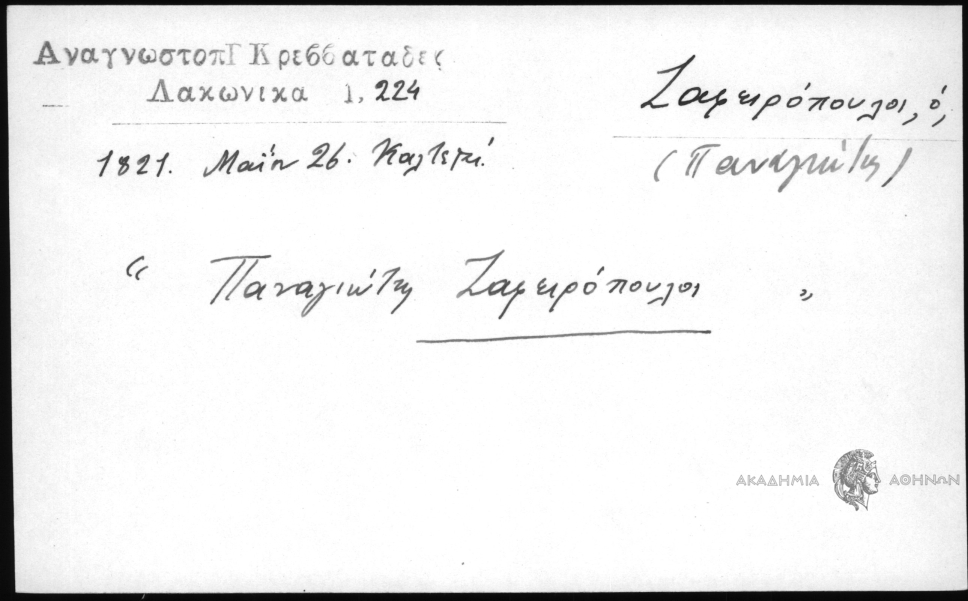 Αναγνωστοπ Γ Κρεββαταδες
Λακωνικα 1, 224
Ζαφειρόπουλος, ὁ,
(Παναγιώτης)
1821. Μαΐου 26. Καλτεζιὲ
“ Παναγιώτης Ζαφειρόπουλος ”
ΑΚΑΔΗΜΙΑ ΑΘΗΝΩΝ